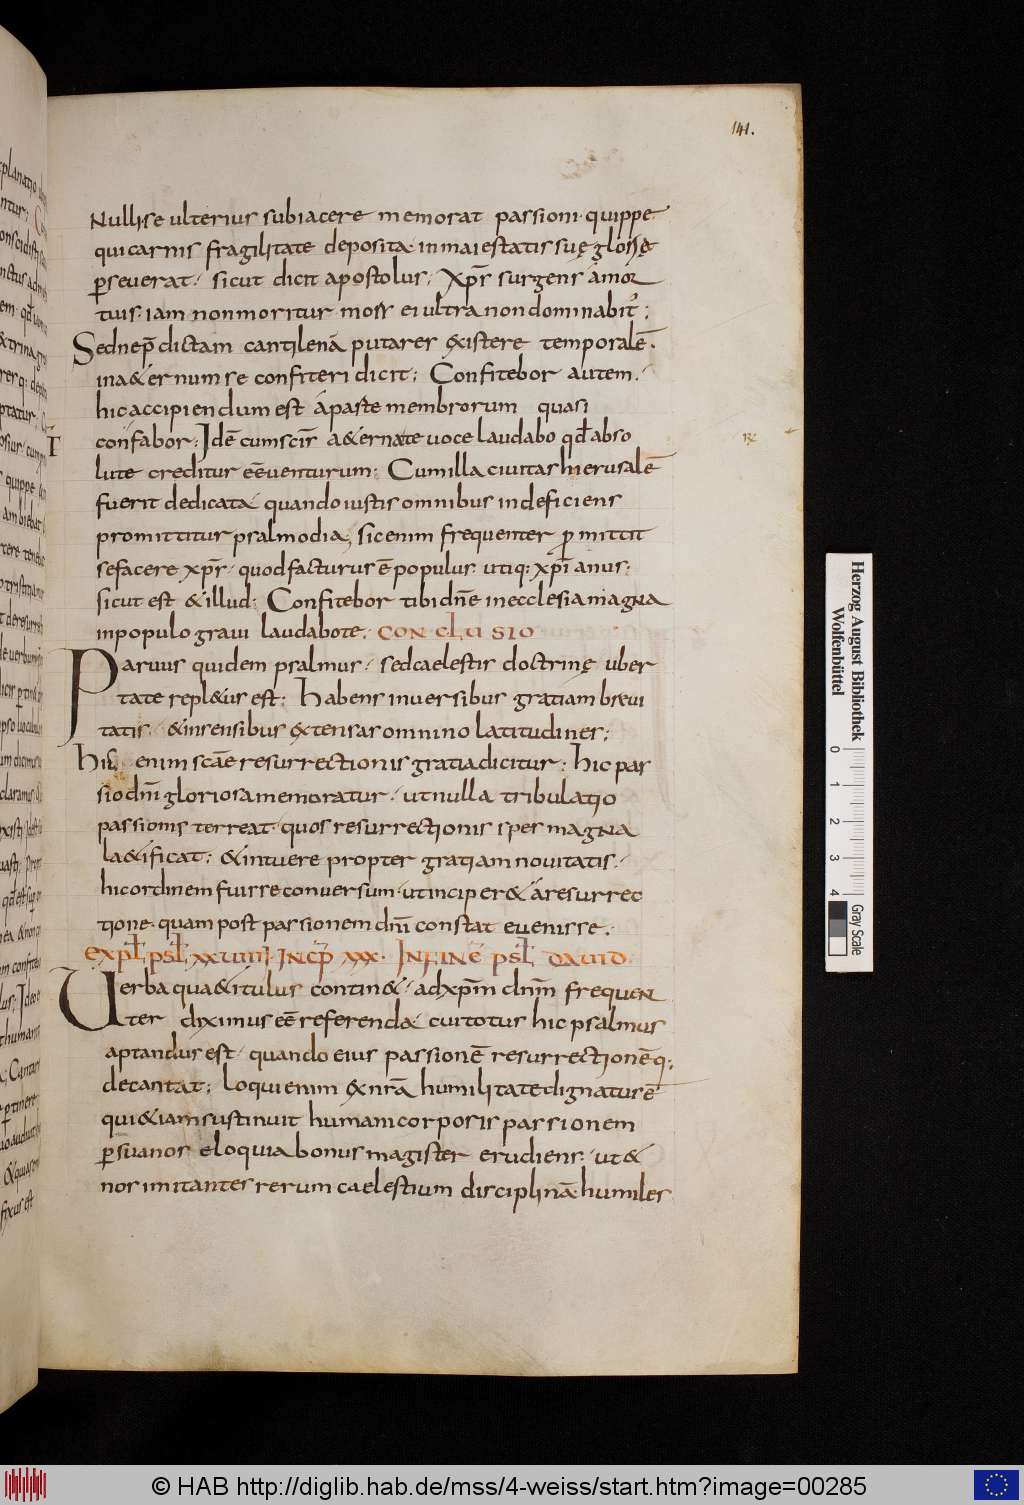 141.
Nullise ulterius subiacere memorat passioni· quippe
qui carnis fragilitate deposita· in maiestatis suę glorię
p̱seuerat· sicut dicit apostolus; Xp̄s surgens á mor
tuis· iam non moritur· mors ei ultra non dominabit᷒;
Sed nep̄dictam cantilenā putares existere temporalē·
in a&ernum se confiteri dicit; Confitebor autem·
hic accipiendum est á parte membrorum quasi
confabor; Idē cum scīs a&ernate uoce laudabo qđ abso
lute creditur eē uenturum; Cum illa ciuitas hierusalē
fuerit dedicata· quando iustis omnibus indeficiens
promittitur psalmodia, sic enim frequenter ꝓmittit
se facere xp̄s· quod facturus ē populus utiq; xp̄ianus;
sicut est & illud; Confitebor tibi dn̄e in ecclesia magna
in populo graui laudabo te· CONCLUSIO
Paruus quidem psalmus· sed caelestis doctrinę uber
tate repl&us est; habens in uersibus gratiam breui
tatis· & in sensibus extensas omnino latitudines;
his enim scāe resurrectionis gratia dicitur; hic pas
sio dn̄i gloriosa memoratur· ut nulla tribulatio
passionis terreat· quos resurrectionis spes magna
la&ificat; & intuere propter gratiam nouitatis·
hic ordinem fuisse conuersum· ut inciper& á resurrec
tione· quam post passionem dn̄i constat euenisse·
EXPL PSL XXVIIII· INCP XXX· IN FINĒ PSL DAUID·
Uerba quae & titulus contin&· ad xp̄m dn̄m frequen
ter diximus eē referenda· cui totus hic psalmus
aptandus est· quando eius passionē resurrectionēq;
decantat; loqui enim ex nr̄a humilitate dignatus ē
qui &iam sustinuit humani corporis passionem
p̱ suanos eloquia bonus magister erudiens· ut &
nos imitantes rerum caelestium disciplinā humiles
Herzog August Bibliothek
Wolfenbüttel
0 1 2 3 4
Gray Scale
© HAB http://diglib.hab.de/mss/4-weiss/start.htm?image=00285